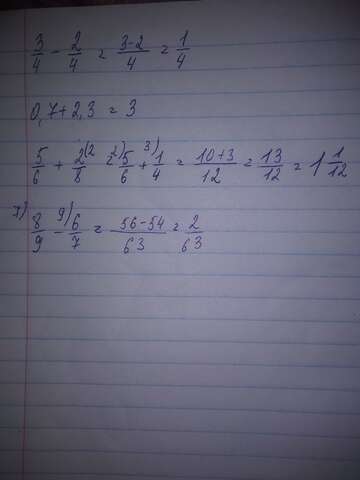 3/4 - 2/4 = 3-2/4 = 1/4
0,7 + 2,3 = 3
5/6 + 2/8 (2 = 2) 5/6 + 3) 1/4 = 10+3/12 = 13/12 = 1 1/12
7) 8/9 - 9) 6/7 = 56-54/63 = 2/63